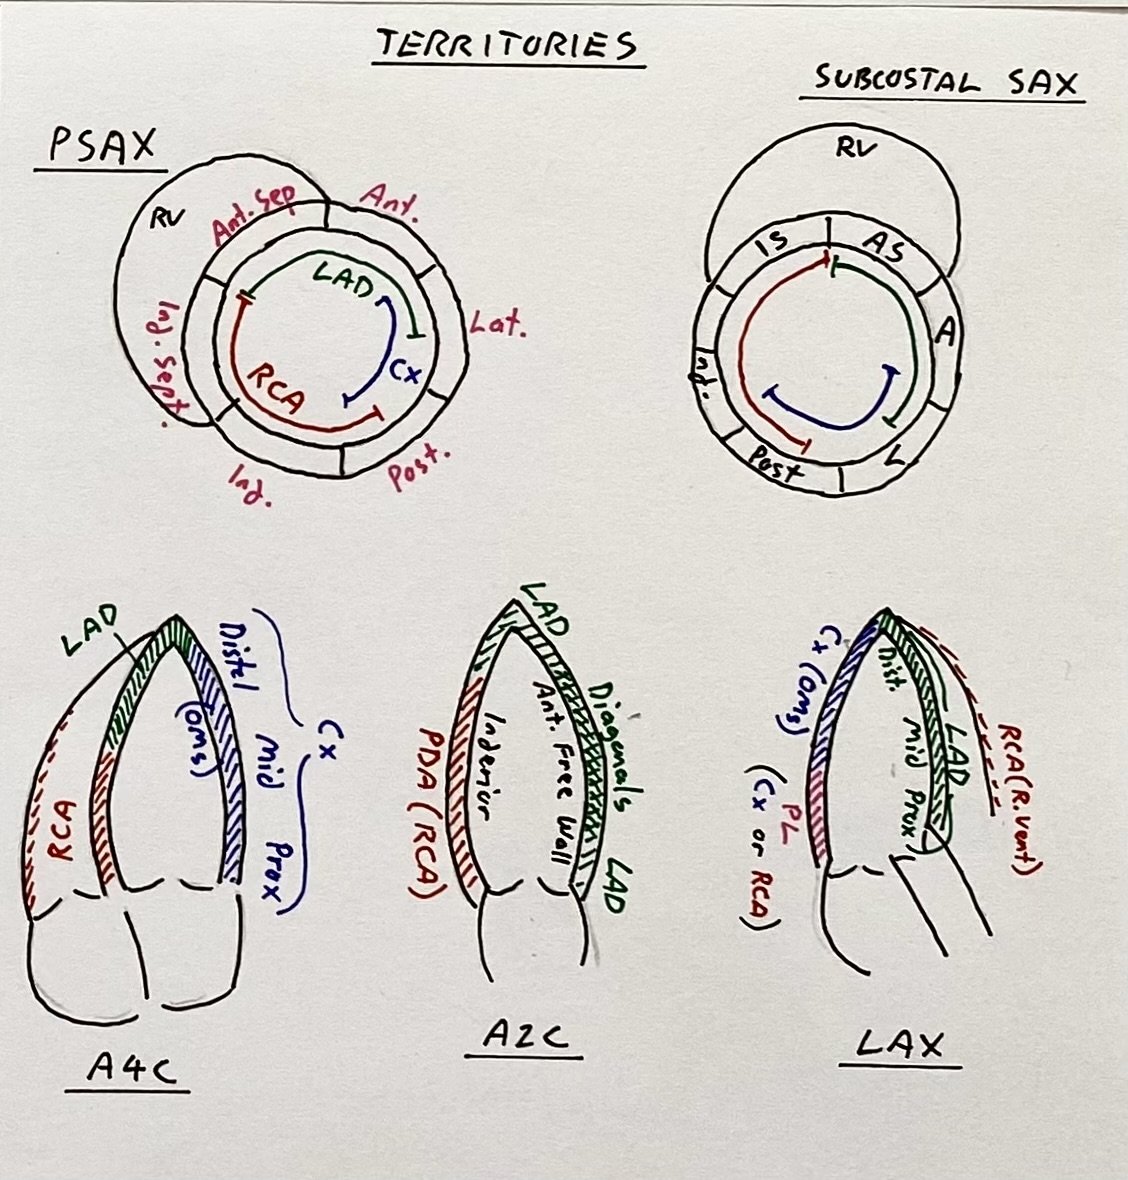 TERRITORIES
SUBCOSTAL SAX
PSAX
RV
Ant. Sep
Ant.
LAD
Lat.
Cx
RCA
Inf. Sept.
Inf.
Post.
RV
IS
AS
A
Inf.
Post
L
LAD
Distal
(OMS)
Mid
Cx
Prox
RCA
A4C
LAD
Diagonals
Ant. Free Wall
Inferior
PDA (RCA)
LAD
A2C
Cx (OMS)
Dist.
Mid
Prox
LAD
RCA (R.vent)
PL
(Cx or RCA)
LAX